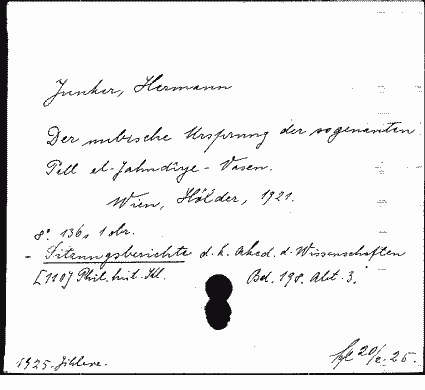 Junker, Hermann
Der nubische Ursprung der sogenannten
Tell el-Jahudīye-Vasen.
Wien, Hölder, 1921.
8°. 136, 1 obr.
- Sitzungsberichte d. k. Akad. d. Wissenschaften
[110] Phil. hist. Kl. Bd. 198. Abt. 3.
1925. 20/2.25.